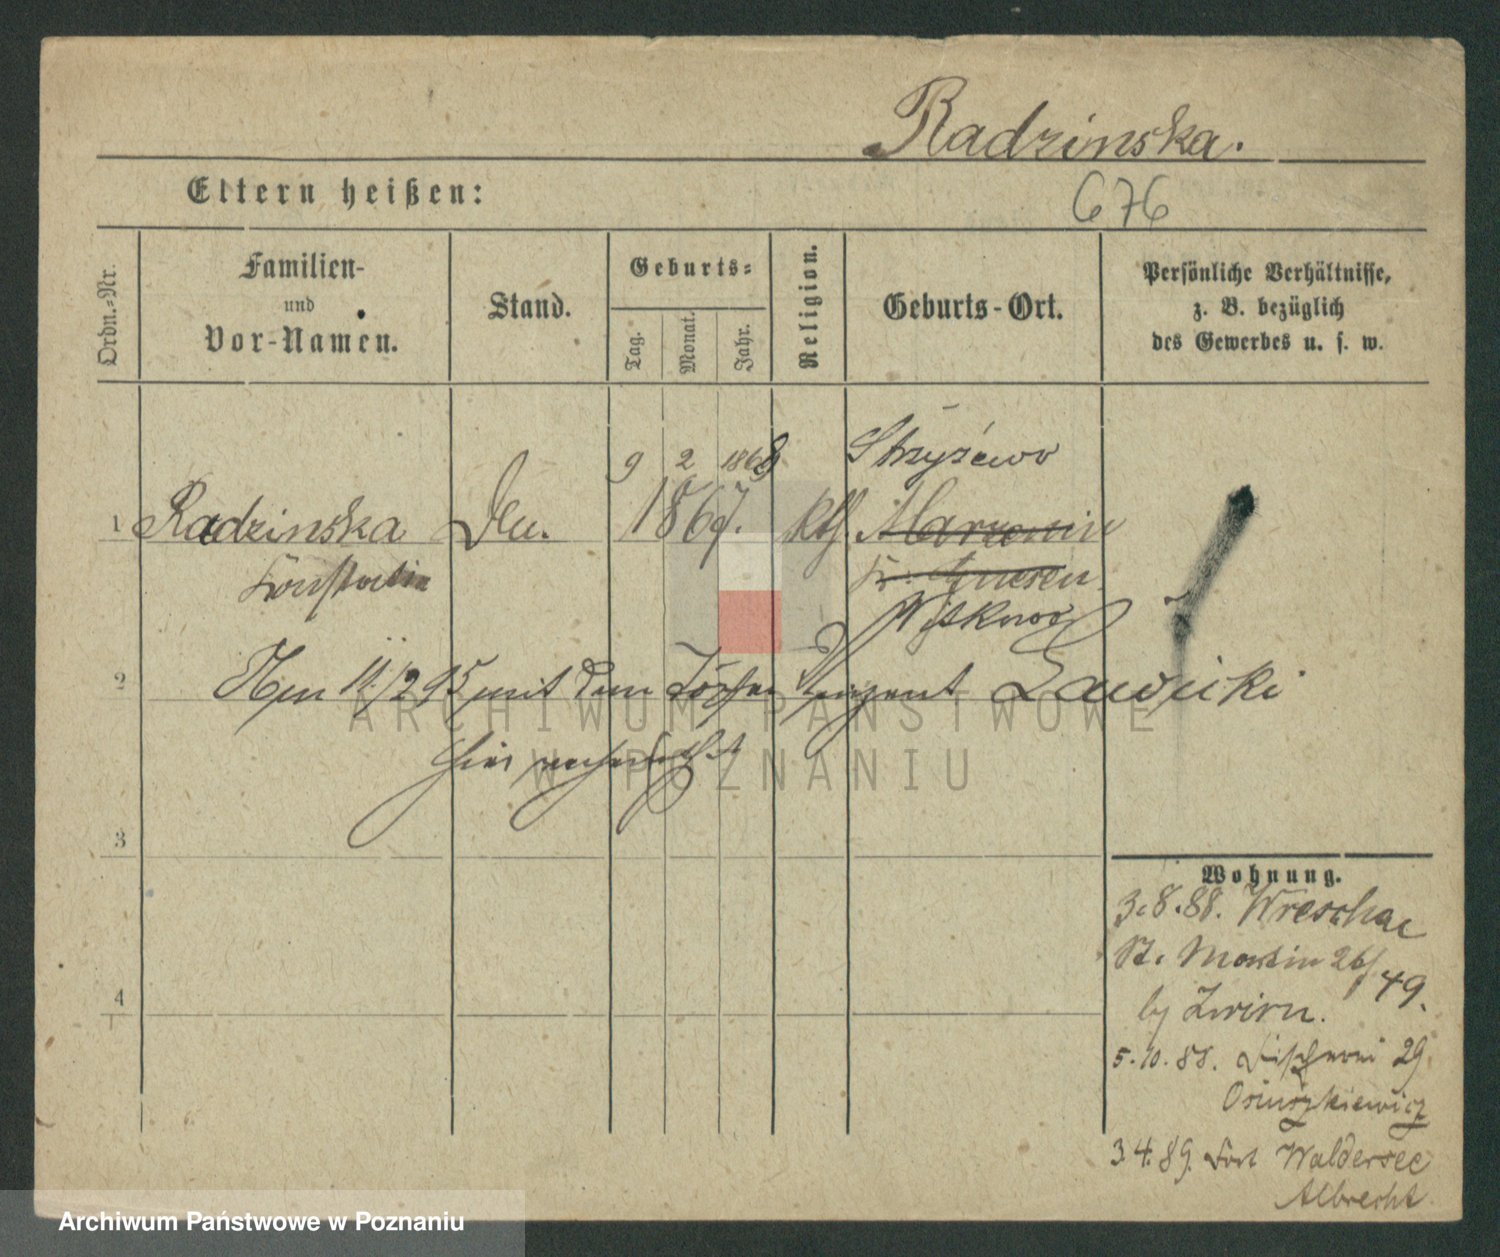 Radzinska.
Eltern heißen:
676
Ordn.-Nr.
Familien-
und
Vor-Namen.
Stand.
Geburts-
Tag.
Monat.
Jahr.
Religion.
Geburts-Ort.
Persönliche Verhältnisse,
z. B. bezüglich
des Gewerbes u. s. w.
9 2 1868 Strzyżewo
1 Radzinska 1867. Kth.
Konstantia Kr. Gnesen
Witkowo
2 Am 11/2 95 mit dem Töpfer Vinzent Zawicki
hier verheirathet
3
4
Wohnung.
3.8.88. Wreschae
St. Martin 26/49.
by Zwirn.
5.10.88. Fischerei 29
Osiuszkiewicz
3.4.89. Fort Waldersee
Albrecht
ARCHIWUM PAŃSTWOWE
W POZNANIU
Archiwum Państwowe w Poznaniu